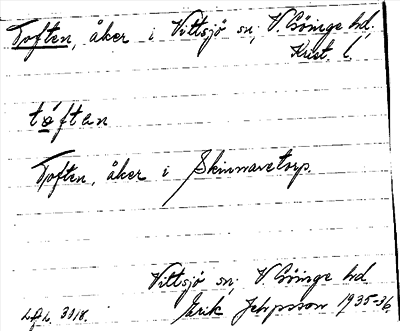 Toften, åker i Vittsjö sn, V. Göinge hd,
Krist. l.
tåften
Toften, åker i Skinnaretorp.
Vittsjö sn, V. Göinge hd.
3018. Erik Jeppsson 1935-36.